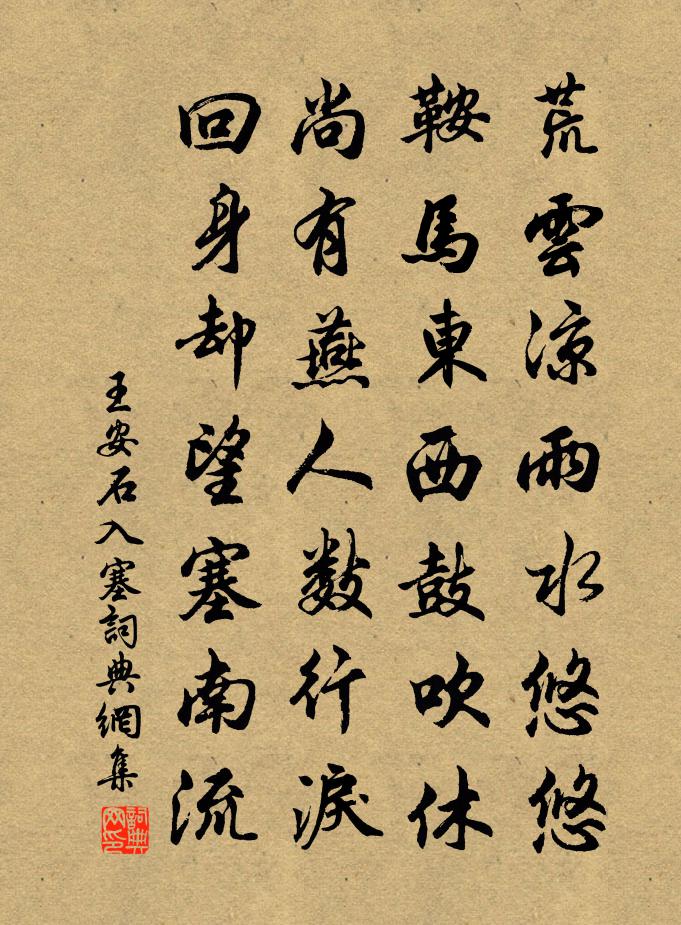 荒雲涼雨水悠悠
鞍馬東西鼓吹休
尚有燕人數行淚
回身却望塞南流
王安石入塞詞典網集
詞典網印